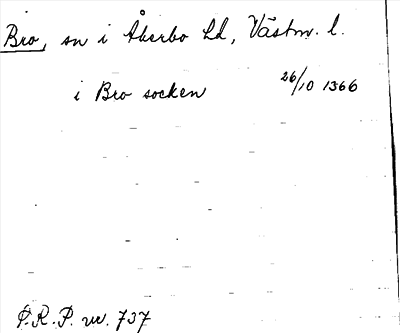 Bro, sn i Åkerbo hd, Västm. l.
i Bro socken 26/10 1366
P.R.P. nr. 737